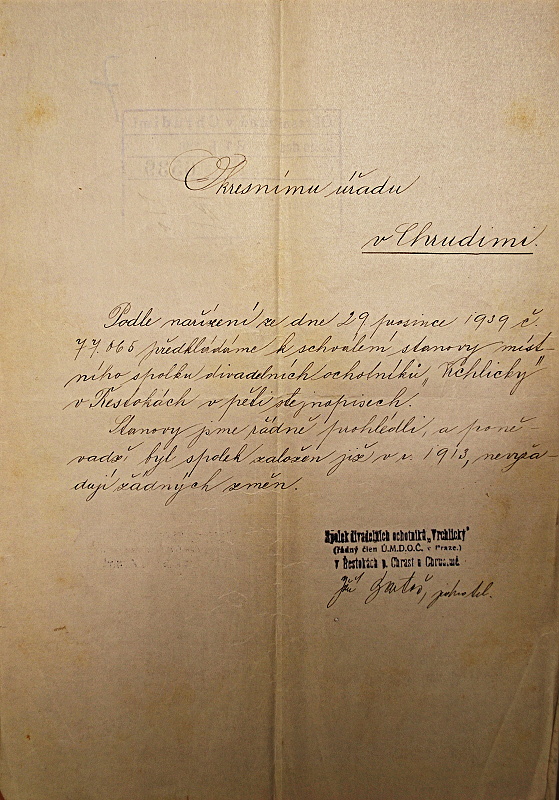 Okresnímu úřadu
v Chrudimi.
Podle nařízení ze dne 29 prosince 1939 č.
77.065 předkládáme k schválení stanovy míst-
ního spolku divadelních ochotníků „Vrchlický"
v Řestokách v pěti stejnopisech.
Stanovy jsme řádně prohlédli, a poně-
vadž byl spolek založen již v r. 1913, nevyža-
dují žádných změn.
Spolek divadelních ochotníků „Vrchlický"
(řádný člen Ú.M.D.O.Č. v Praze.)
v Řestokách p. Chrast u Chrudimě
Bartoš, jednatel.